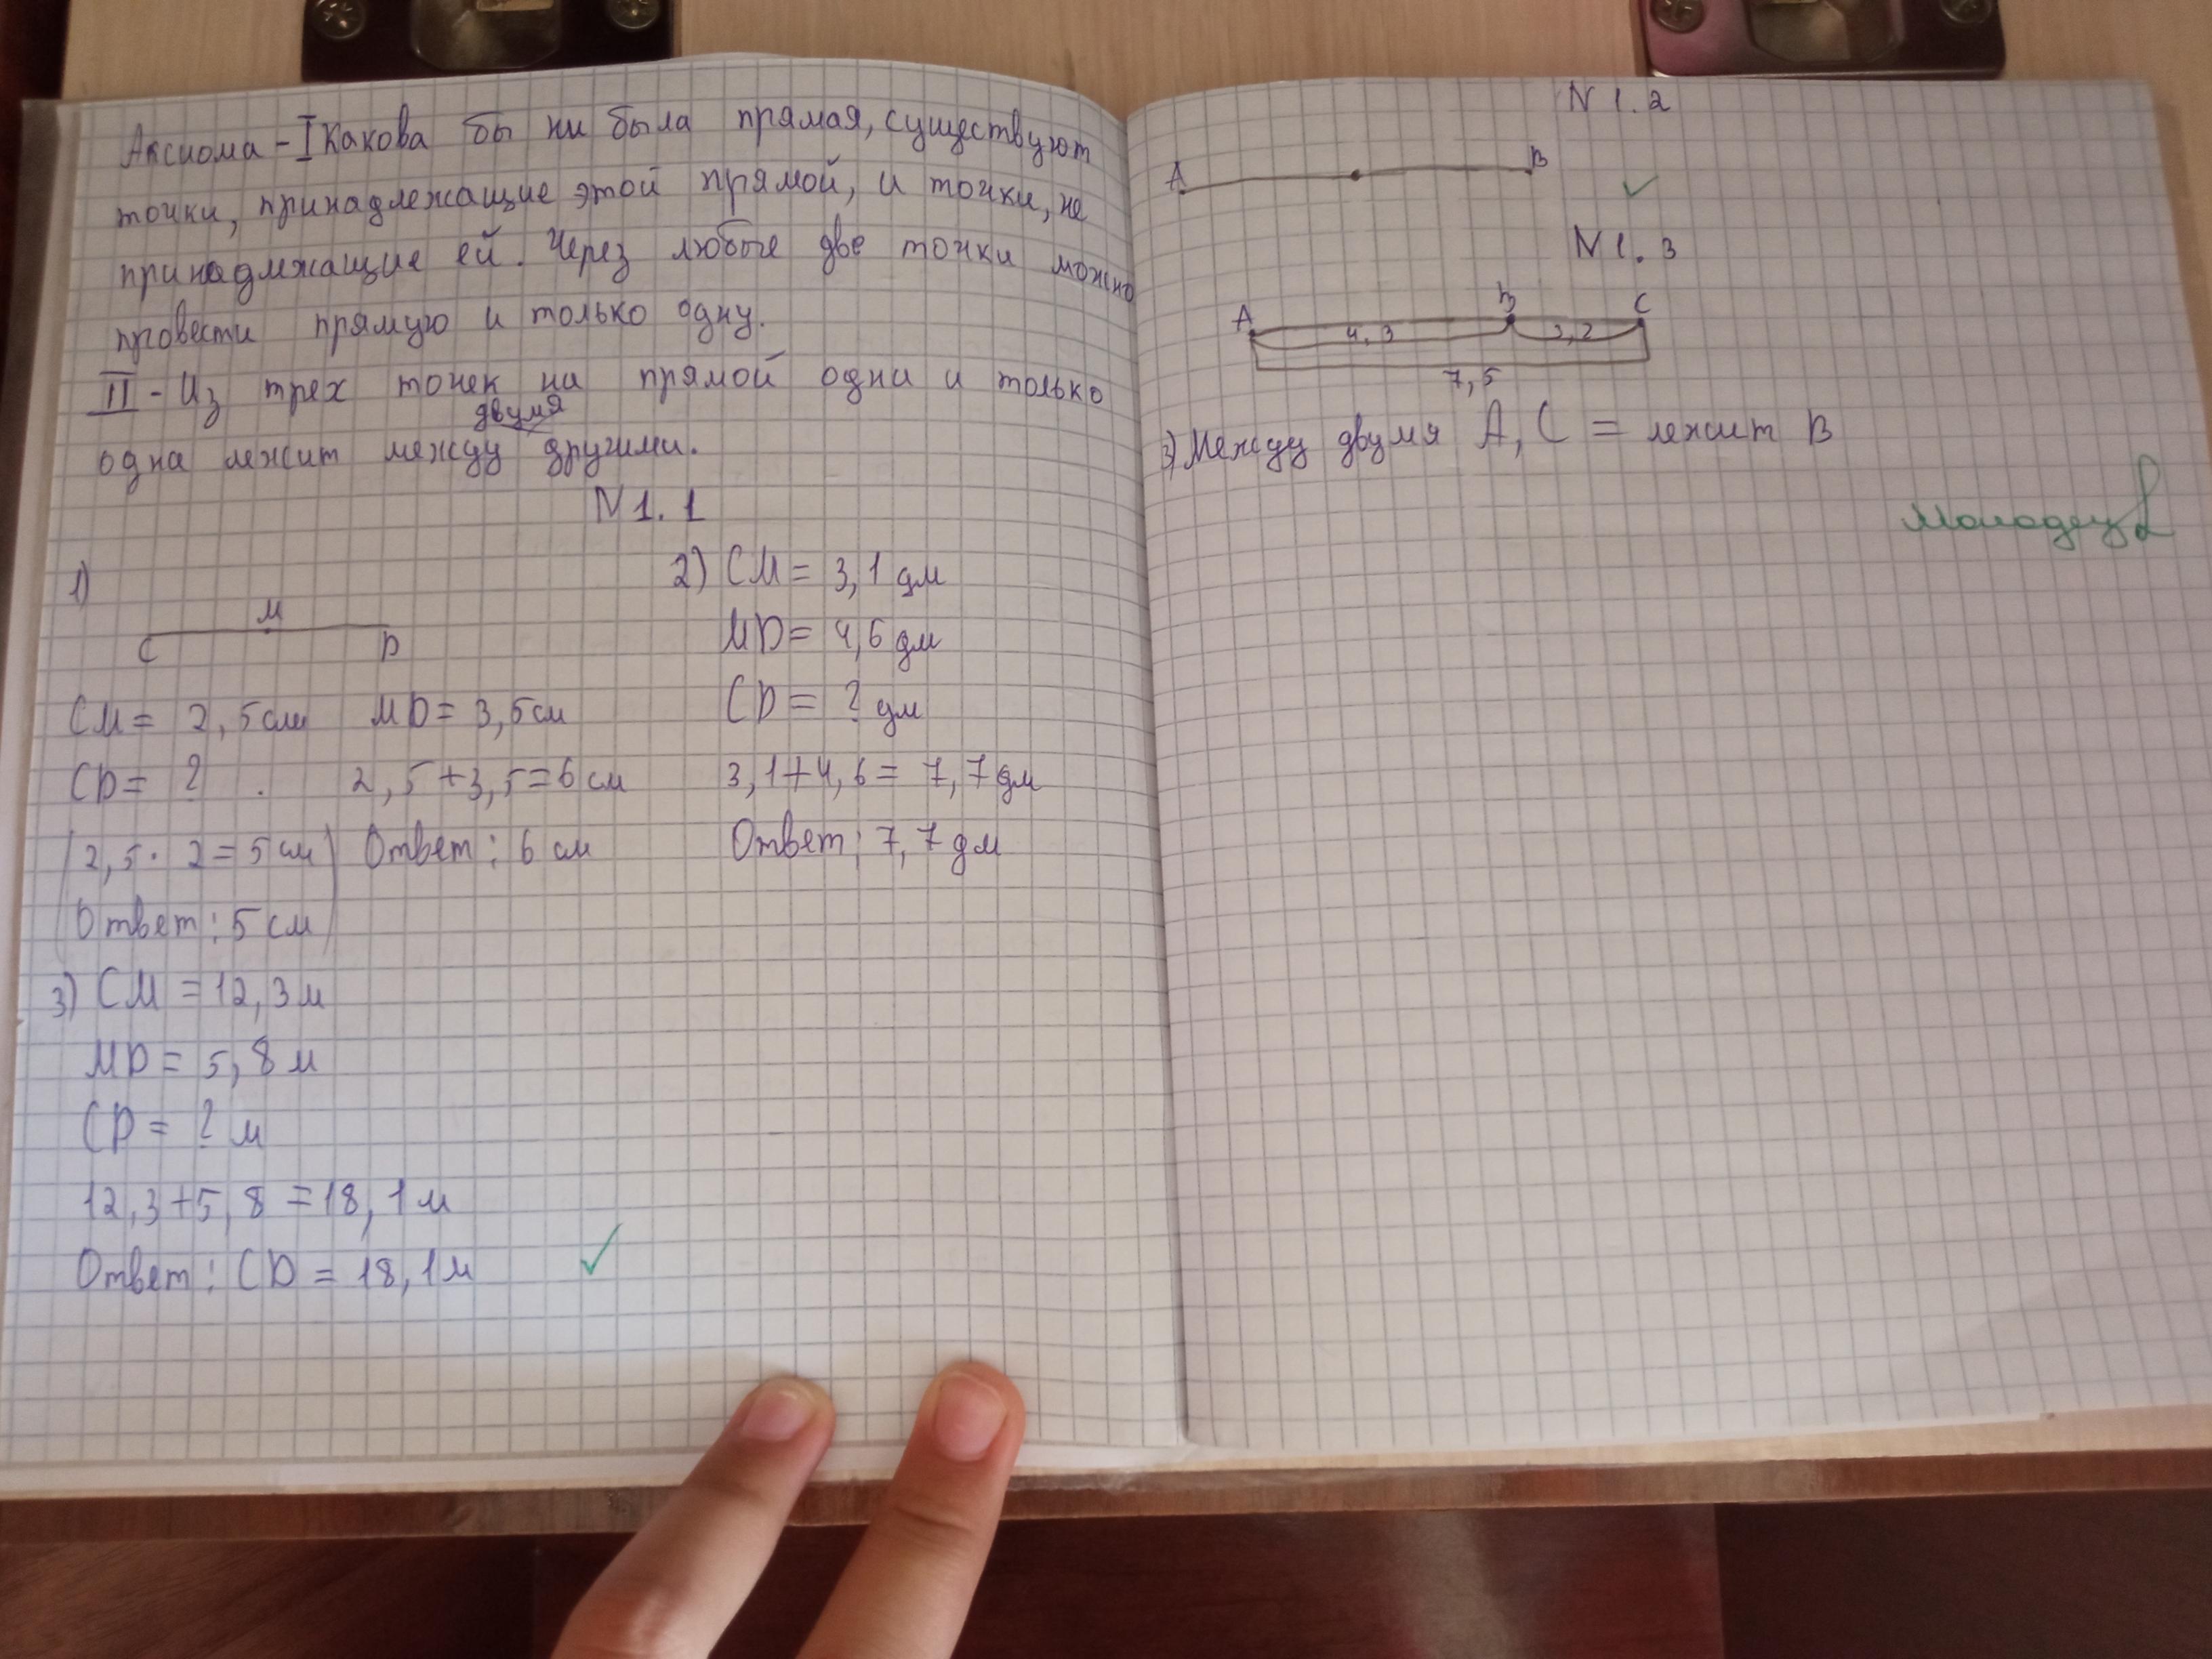 Аксиома - I Какова бы ни была прямая, существуют
точки, принадлежащие этой прямой, и точки, не
принадлежащие ей. Через любые две точки можно
провести прямую и только одну.
II - Из трех точек на прямой одна и только
двумя
одна лежит между другими.
N 1. 1
1)
M
C D
CM = 2,5 см MD = 3,5 см
CD = ? . 2,5 + 3,5 = 6 см
(2,5 · 2 = 5 см) Ответ: 6 см
(Ответ: 5 см)
2) CM = 3,1 дм
MD = 4,6 дм
CD = ? дм
3,1 + 4,6 = 7,7 дм
Ответ: 7,7 дм
3) CM = 12,3 м
MD = 5,8 м
CD = ? м
12,3 + 5,8 = 18,1 м
Ответ: CD = 18,1 м
N 1. 2
A B
N 1. 3
A B C
4,3 3,2
7,5
3) Между двумя A, C = лежит B
Молодец